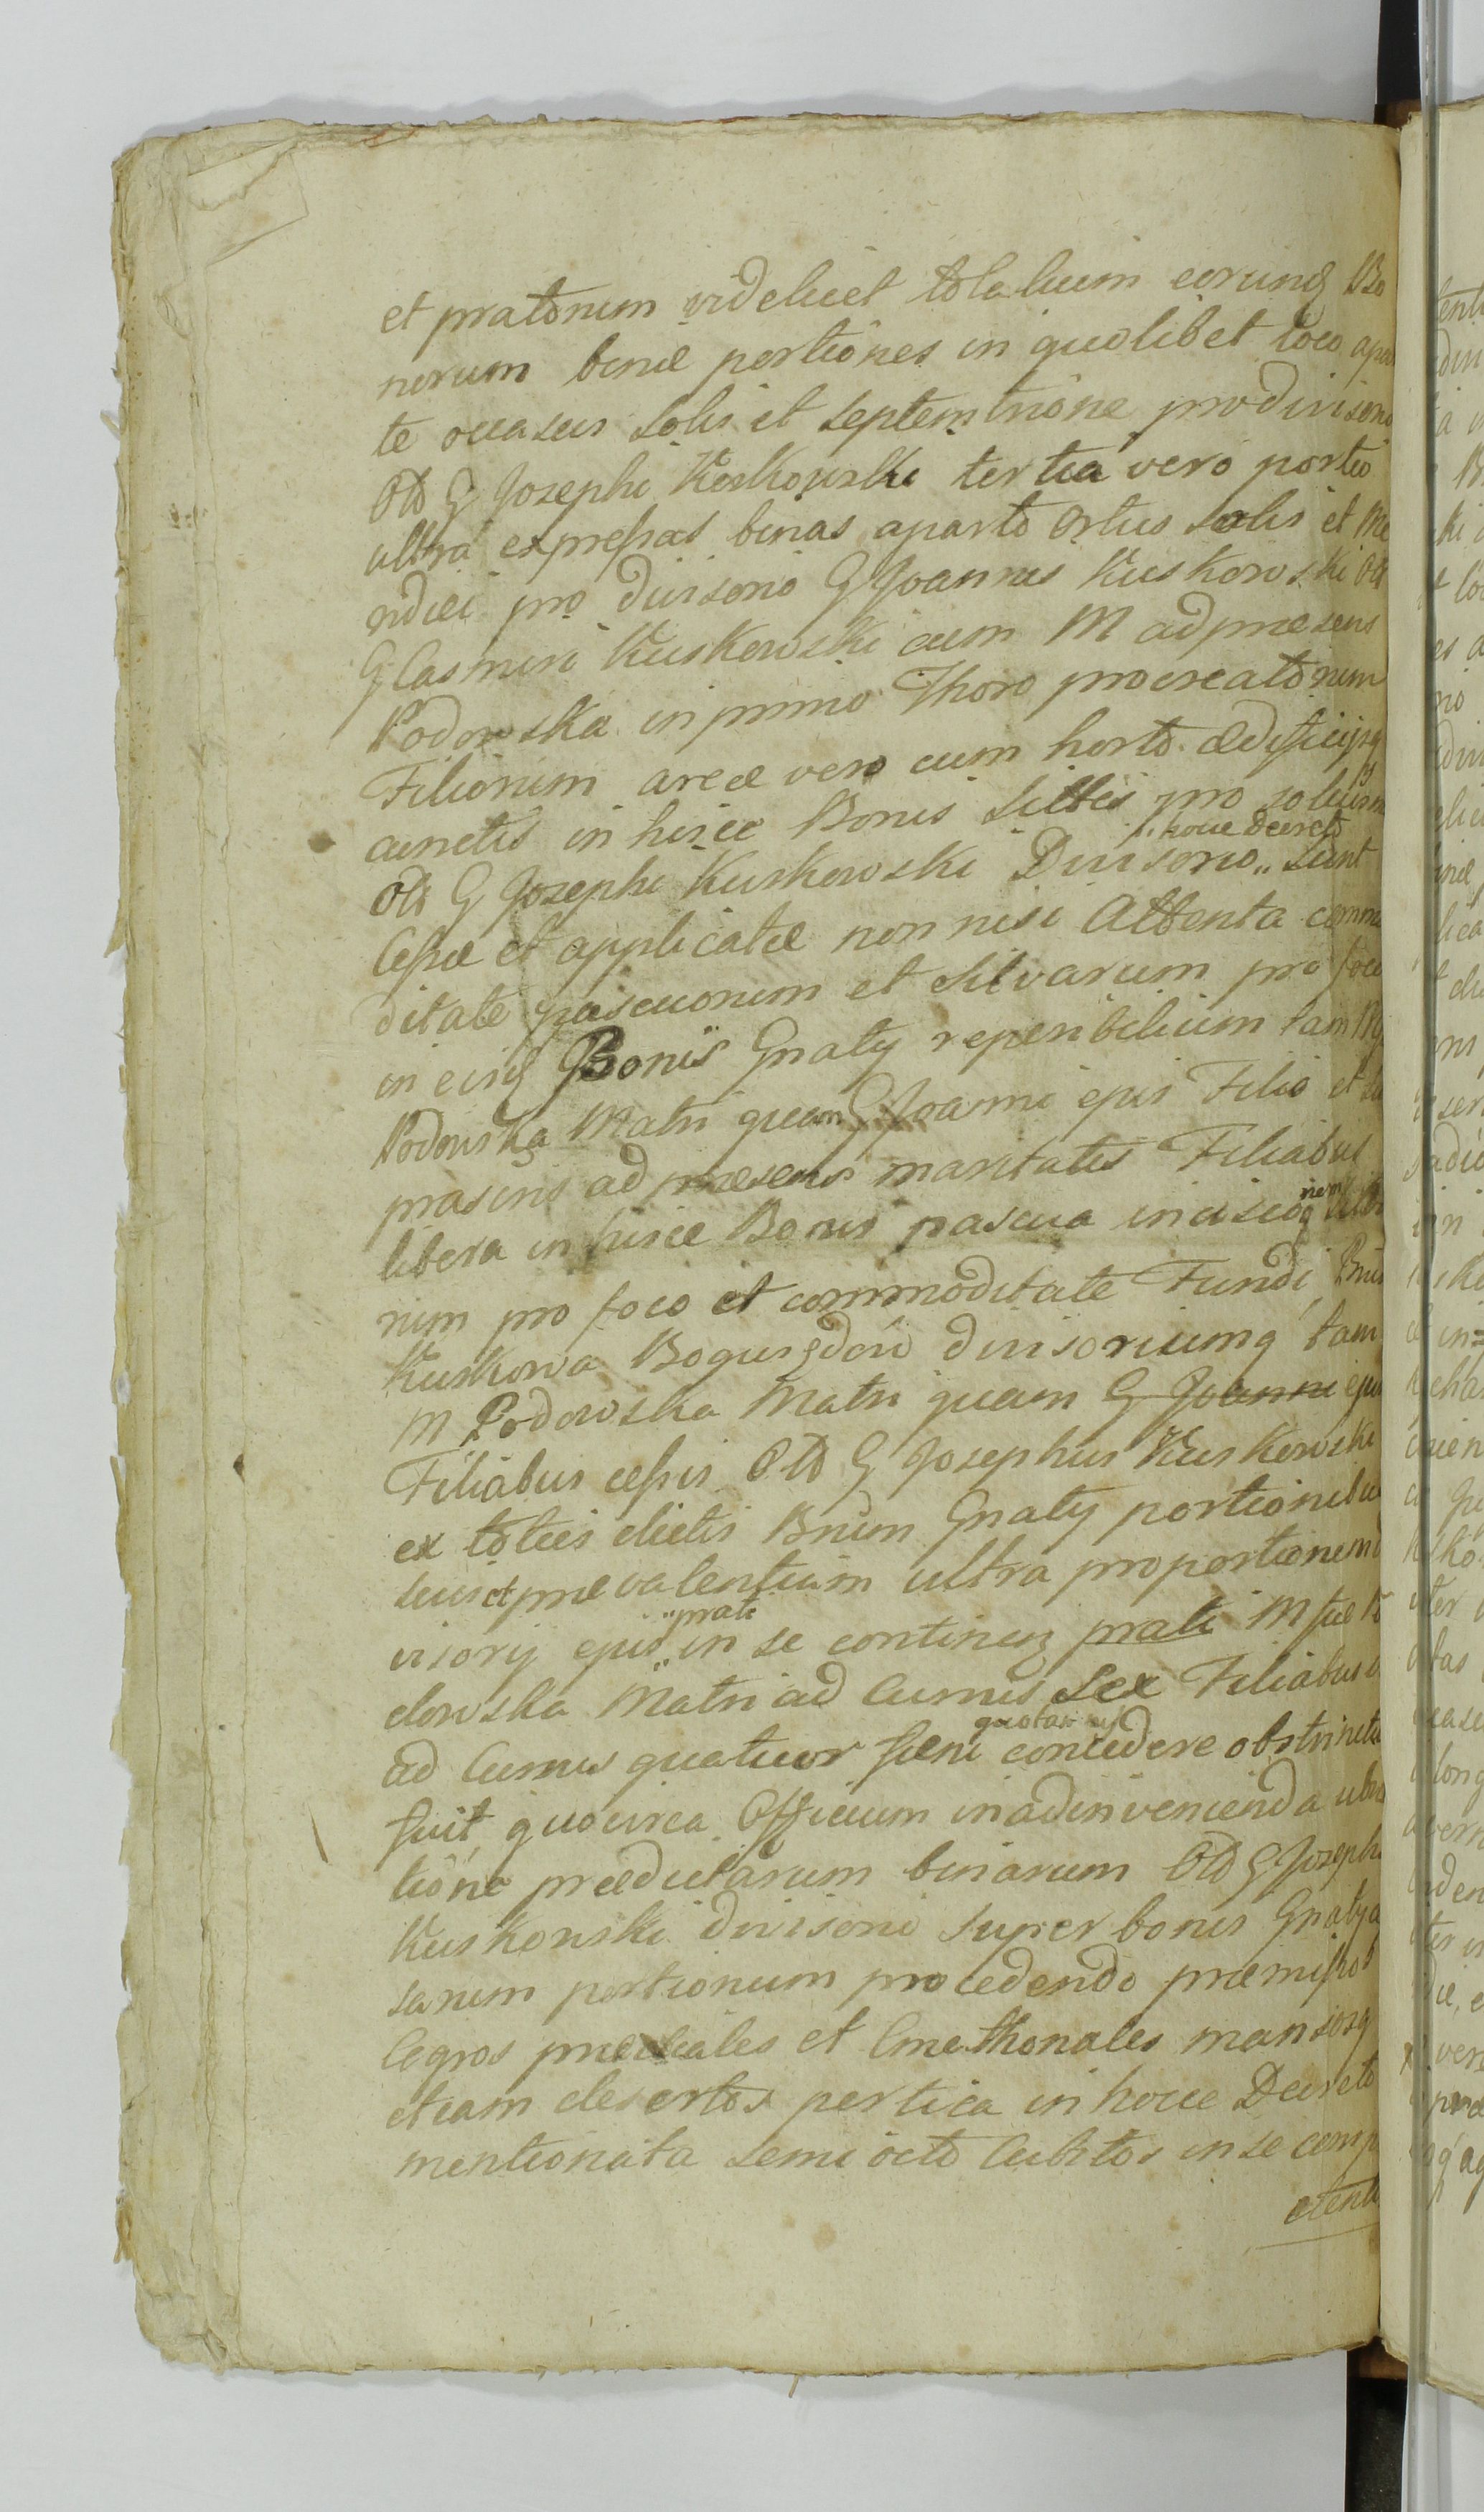 et pratorum videlicet totalium eorundq Bo
norum binæ portiones in quolibet loco apar
te occasus Solis et Septemtrione pro divisorio
Olb G Josephi Kuskowski tertia vero portio
ultra expressas binas aparte Ortus Solis et Me
ridiei pro divisorio G Joannis Kuskowski Olb
G Casmiri Kuskowski cum M ad præsens
Podowska in primo Thoro procreatorum
Filiorum areæ vero cum horto ædificijsq
cunctis in hisce Bonis sittis pro solius
Olb G Josephi Kuskowski Divisorio „ hocce Decreto „ sunt
Cessæ et applicatæ non nisi Attenta commo
ditate pascuorum et Silvarum pro foco
in eisq Bonis Gnaty reperibilium tam M
Podowska Matri quam G Joanni ejus Filio et
ad præsens maritatis Filiabus
libera in hisce Bonis pascua incisioq nem
rum pro foco et commoditate Fundi Bnis
Kuskowa Bogusędów divisoriumq tam
M Podowska Matri quam G Joanni ejus
Filiabus cessis Olb G Josephus Kuskowski
ex toties dictis Bnum Gnaty portionibus
suis et prævalentium ultra proportionem di
visorij ejus „ prati „ in se continen prati M suæ Po
dowska Matri ad Currus Sex Filiabus v
ad Currus quatuor fæni quotannis concedere obstrictus
fuit, quocirca Officium in adinvenienda ubica
tione prædictarum binarum Olb G Josephi
Kuskowski divisorio super bonis Gnaty ces
sarum portionum procedendo præmissos
Cegros prædiales et Cmethonales mansosq
etiam desertos pertica in hocce Decreto
mentionata semi octo Cubitos in se comp
ctente